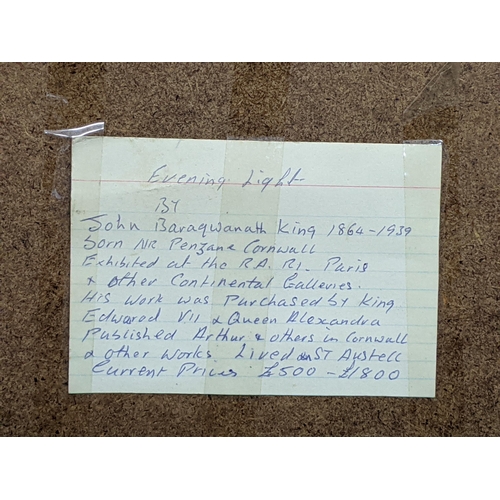 Evening Light
BY
John Baragwanath King 1864-1939
born NR Penzance Cornwall
Exhibited at the R.A. R.I. Paris
& other Continental Galleries.
His work was Purchased by King
Edward VII & Queen Alexandra
Published Arthur & others in Cornwall
& other works. Lived in ST Austell
Current Prices £500 - £1800